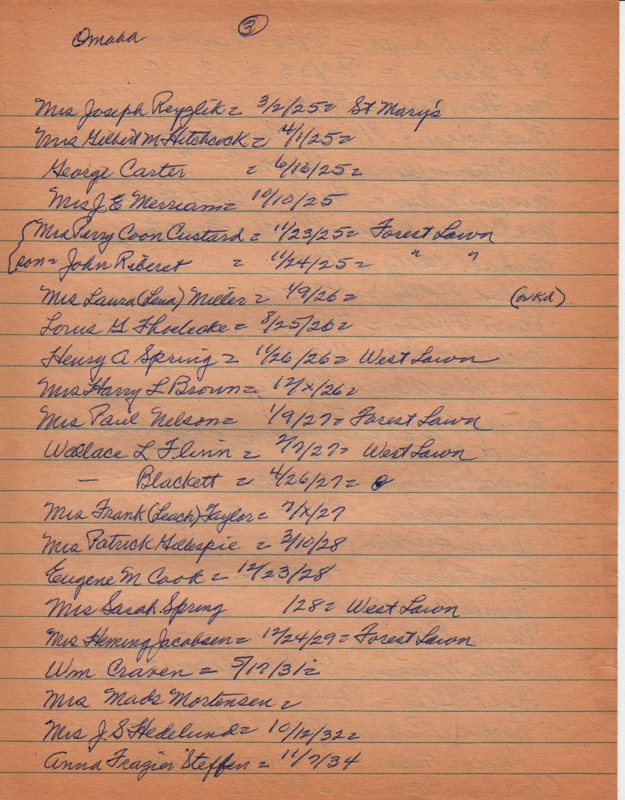 Omaha ③
Mrs Joseph Reyzlik = 3/2/25 = St Mary's
Mrs Gilbert M Hitchcock = 4/1/25 =
George Carter = 6/16/25 =
Mrs J E Merriam = 10/10/25
Mrs Perry Coon Custard = 11/23/25 = Forest Lawn
son = John Riberet = 11/24/25 = " "
Mrs Laura (Lena) Miller = 1/9/26 = (wkd)
Lorus G Thoelecke = 8/25/26 =
Henry A Spring = 11/26/26 = West Lawn
Mrs Harry L Brown = 12/x/26 =
Mrs Paul Nelson = 1/9/27 = Forest Lawn
Wallace L Flinn = 2/7/27 = West Lawn
— Blackett = 4/26/27 =
Mrs Frank (Leach) Taylor = 7/x/27
Mrs Patrick Gillespie = 3/10/28
Eugene M Cook = 12/23/28
Mrs Sarah Spring /28 = West Lawn
Mrs Heming Jacobsen = 12/24/29 = Forest Lawn
Wm Craven = 5/17/31 =
Mrs Mads Mortensen =
Mrs J S Hedelund = 10/12/32 =
Anna Frazier Steffen = 11/7/34